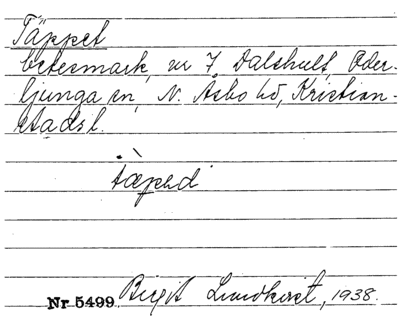 Täppet
betesmark, nr 7 Dalshult, Oder-
ljunga sn, N. Åsbo hd, Kristian-
stads l.
Nr 5499 Birgit Lundkvist, 1938.